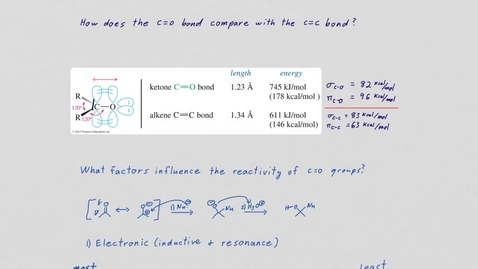 How does the C=O bond compare with the C=C bond?
length energy
ketone C=O bond 1.23 Å 745 kJ/mol
(178 kcal/mol)
alkene C=C bond 1.34 Å 611 kJ/mol
(146 kcal/mol)
R
R
C
O
120°
120°
σC-O = 82 kcal/mol
πC-O = 96 kcal/mol
σC-C = 83 kcal/mol
πC-C = 63 kcal/mol
What factors influence the reactivity of C=O groups?
1) Nu:⁻
2) H3O⊕
1) Electronic (inductive + resonance)
most least